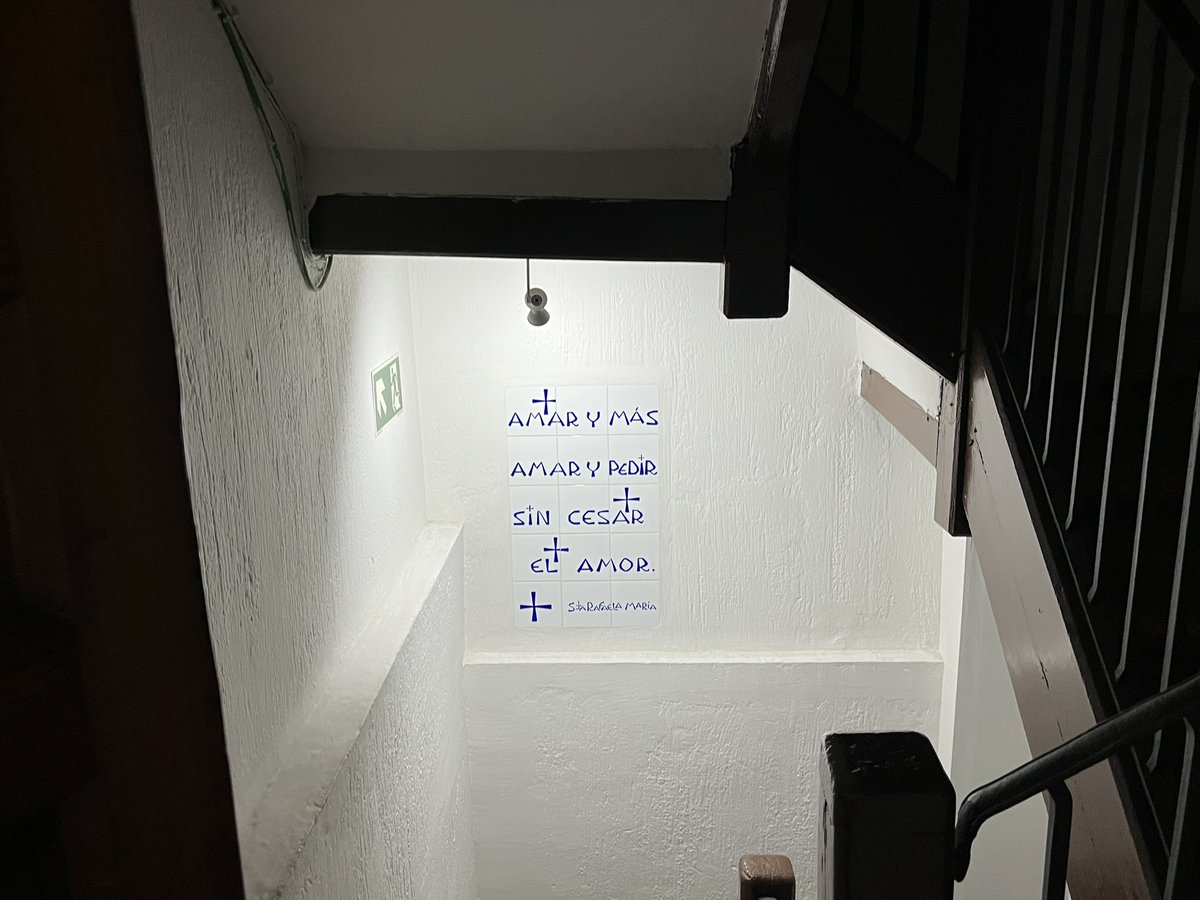 AMAR Y MÁS
AMAR Y PEDIR
SIN CESAR
EL AMOR.
Sta RAFAELA MARÍA